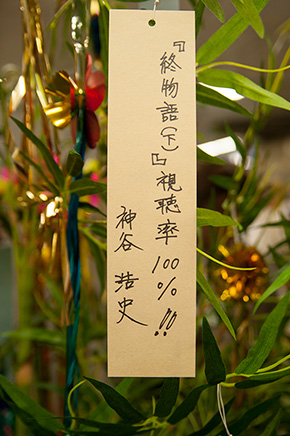 『終物語(下)』視聴率100%!!
神谷浩史